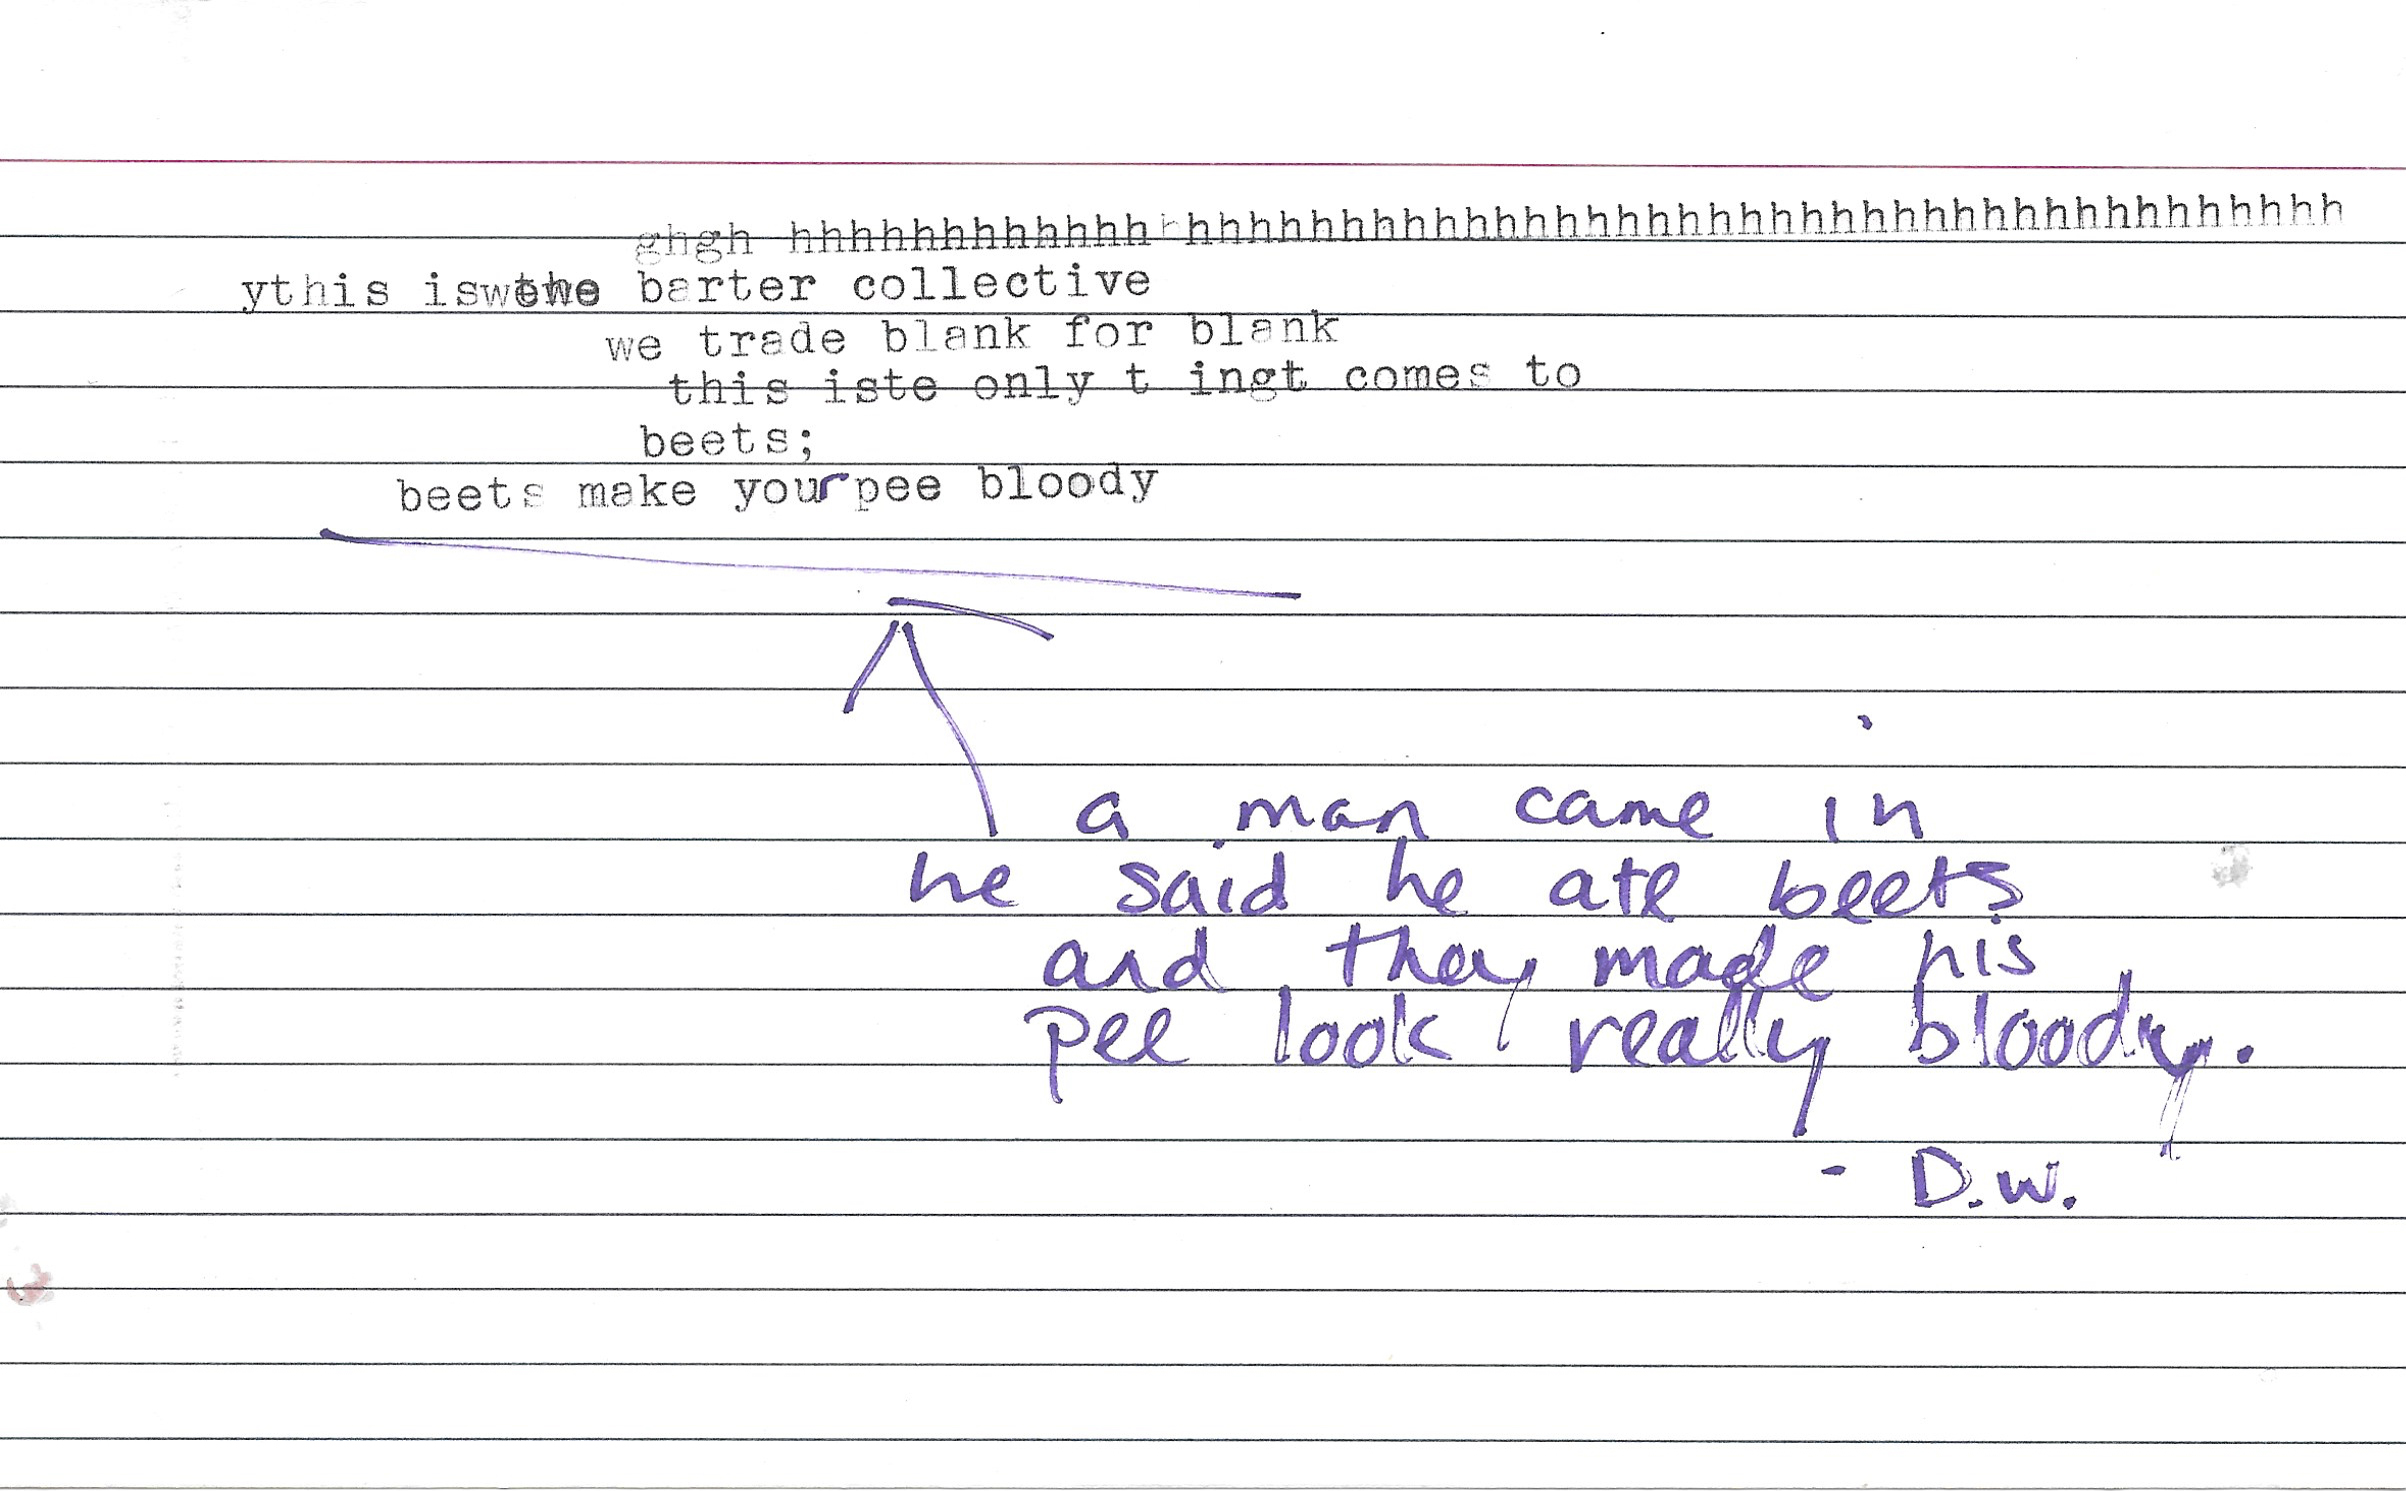 ghgh hhhhhhhhhhhhhhhhhhhhhhhhhhhhhhhhhhhhhhhhhhhhhhhhhhh
ythis iswthe barter collective
we trade blank for blank
this iste only t ingt comes to
beets;
beets make your pee bloody
a man came in
he said he ate beets
and they made his
pee look really bloody.
- D.W.